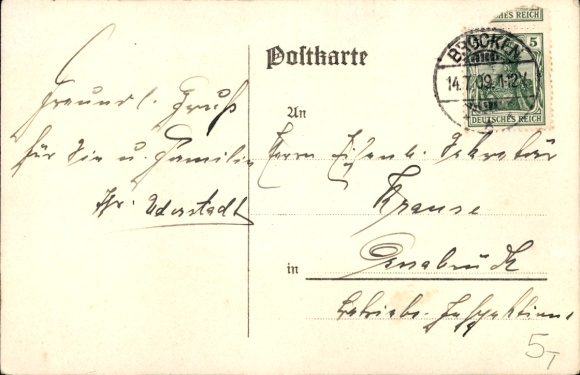 Postkarte
REICH
5
DEUTSCHES REICH
BROCKEN
14.7.09.
Freundl. Gruß
für Sie u. Familie
Fr. Uderstadt
An
Herrn Eisenb. Sekretär
Krause
in Osnabrück
Betriebs-Inspektion
5T